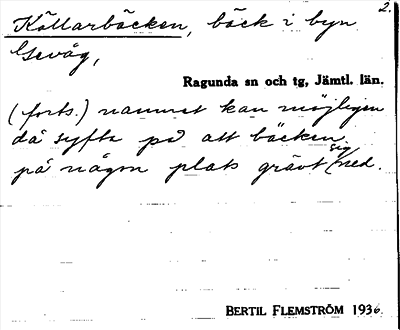 2.
Källarbäcken, bäck i byn
Gevåg,
Ragunda sn och tg, Jämtl. län.
(forts.) namnet kan möjligen
då syfta på att bäcken
på någon plats grävt sig ned.
BERTIL FLEMSTRÖM 1936.